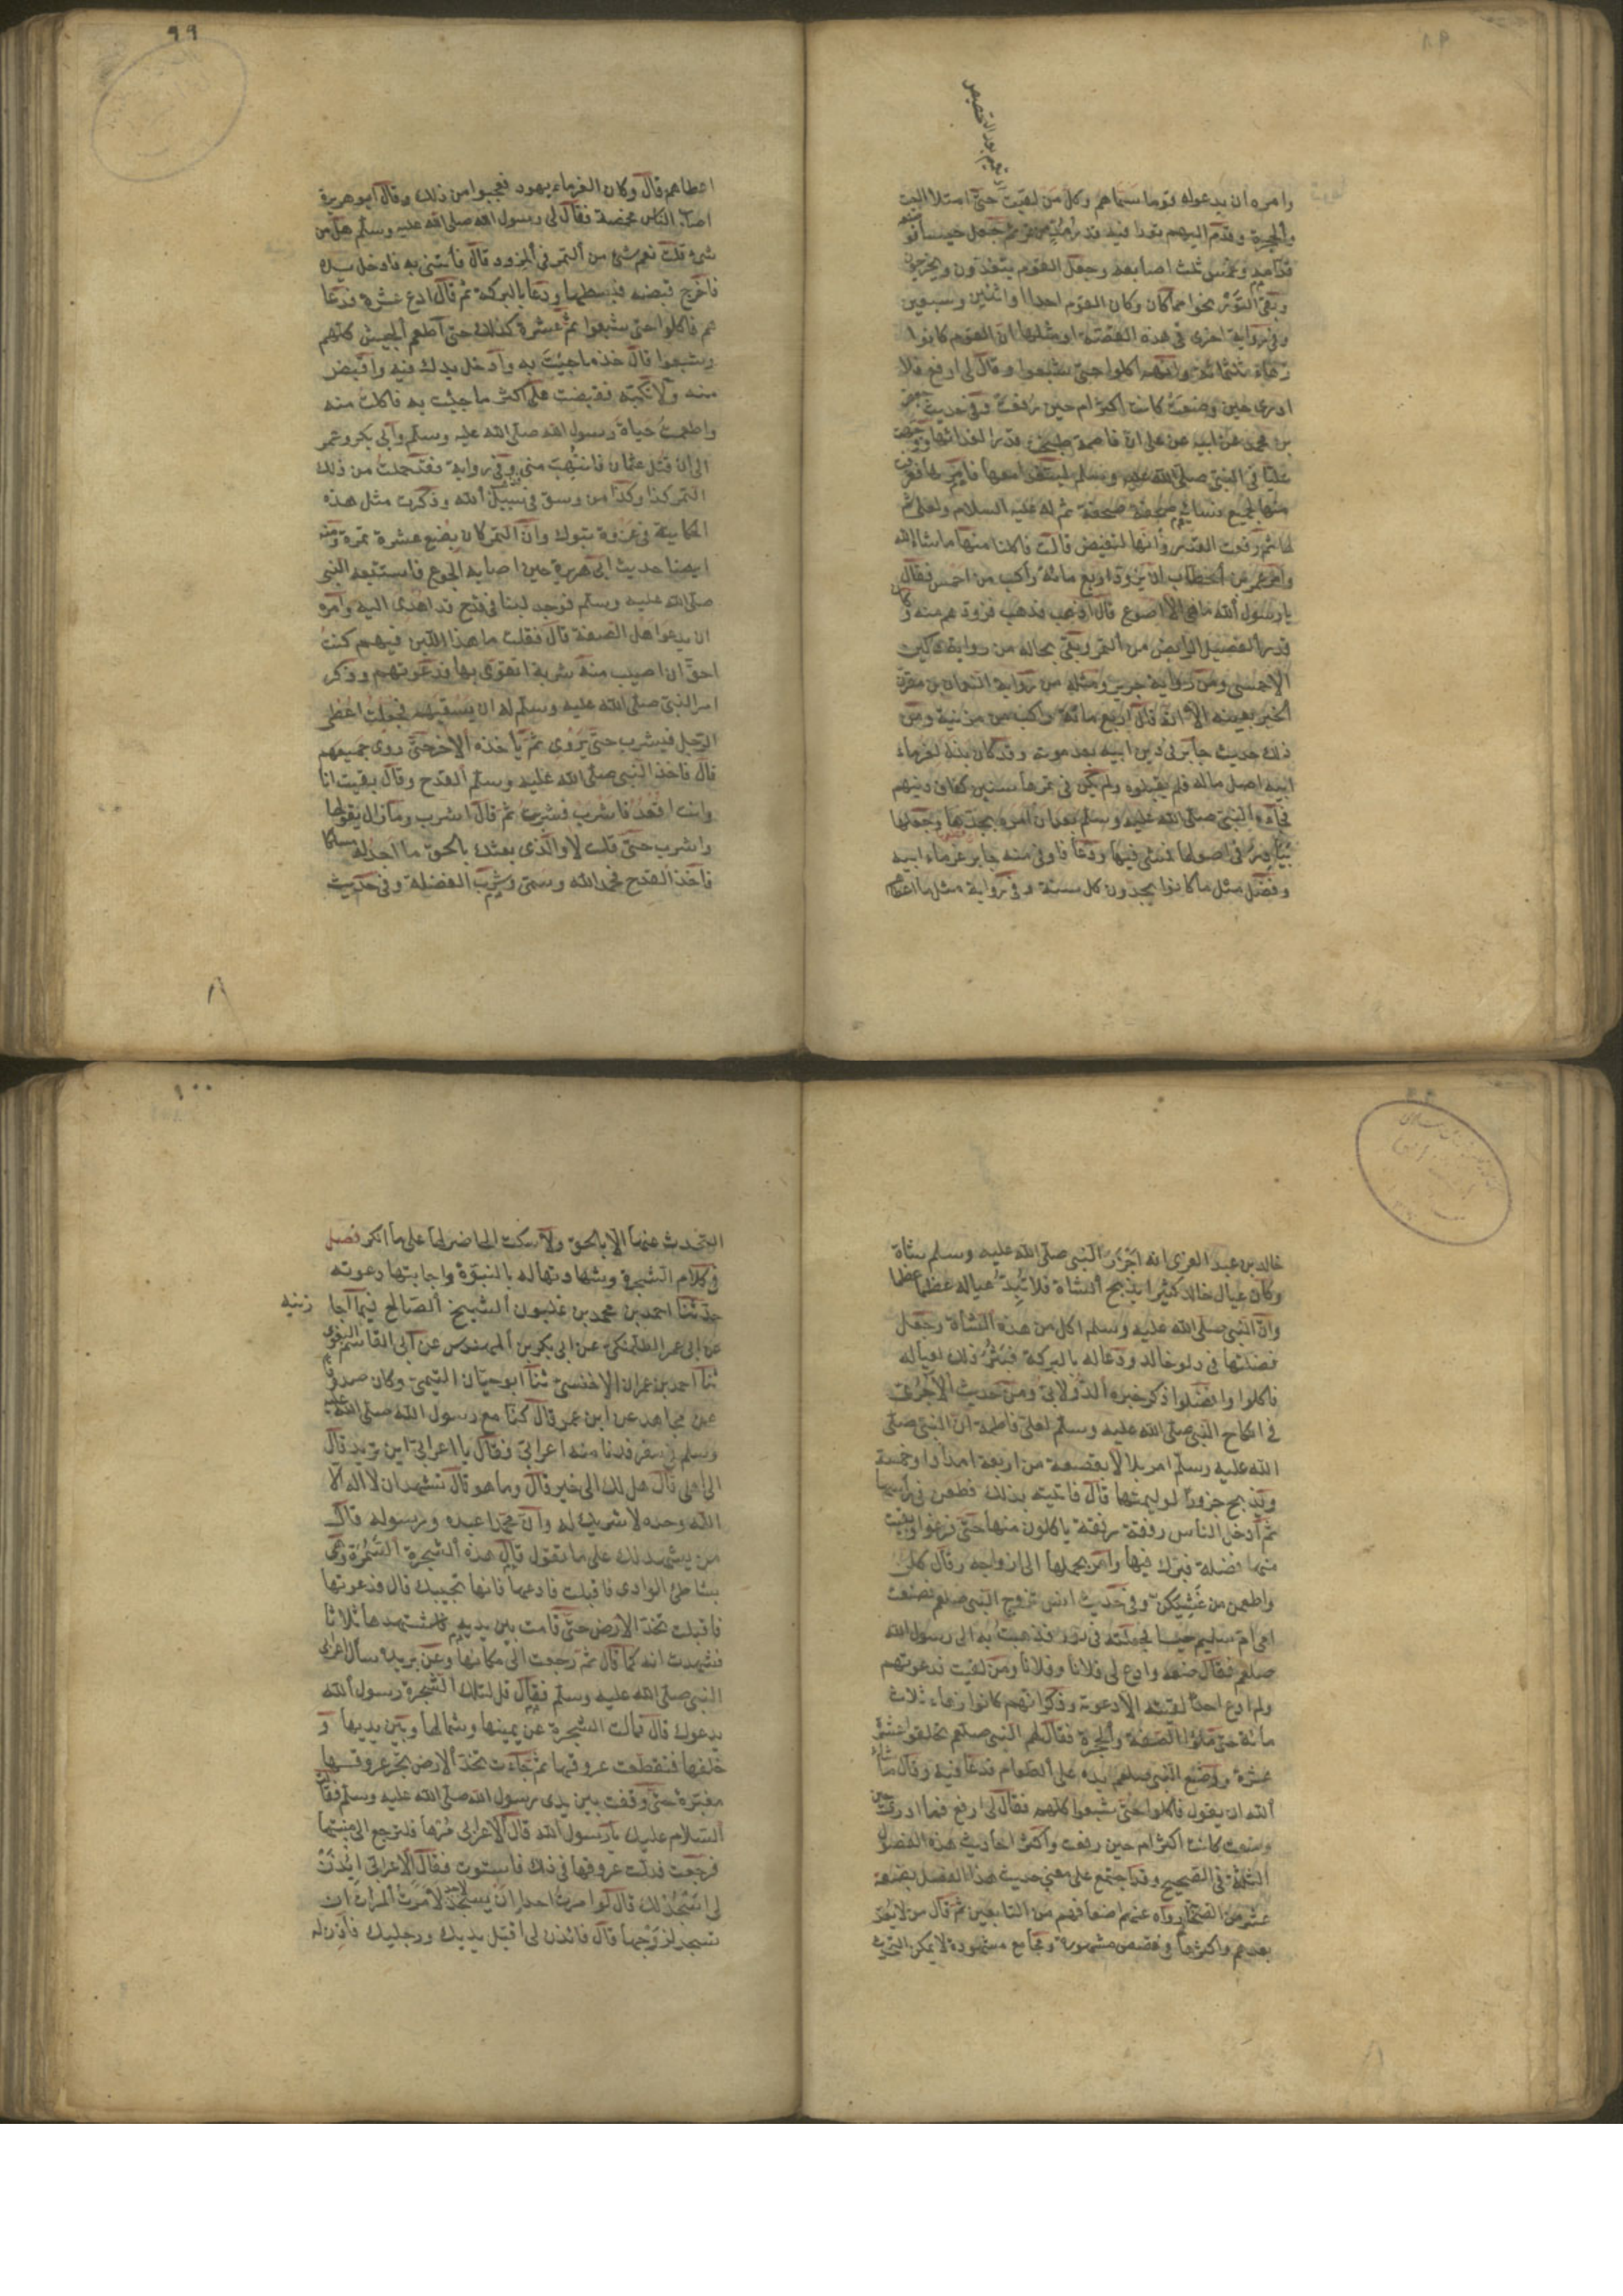 وامره ان يدعوله قوما سماهم وكل من لقيت حتى امتلا البيت
والحجرة وقدم اليهم تورا فيه قدر مد من تمر جعل حيسا فوضعه
قدامه وغمس ثلث اصابعه وجعل القوم يتغدون ويخرجون
وبقى التور نحوا مما كان وكان القوم احدا او اثنين وسبعين
وفى رواية اخرى فى هذه القصة او مثلها ان القوم كانوا
زهاء ثلثمائة وانهم اكلوا حتى شبعوا وقال لى ارفع فلا
ادرى حين وضعت كانت اكثر ام حين رفعت وفى حديث جعفر
بن محمد عن ابيه عن على ان فاطمة طبخت قدرا لغدائها ووجهت
عليا الى النبى صلى الله عليه وسلم ليتغدى معها فامرها فغرفت
منها لجميع نسائه صحفة صحفة ثم له عليه السلام ولعلى ثم
لها ثم رفعت القدر وانها لتفيض قالت فاكلنا منها ما شاء الله
وامر عمر بن الخطاب ان يزود اربع مائة راكب من احمس فقال
يا رسول الله ما هى الا اصوع قال اذهب فذهب فزودهم منه وكان
قدر الفصيل الرابض من التمر وبقى بحاله من رواية دكين
الاحمسى ومن رواية جرير ومثله من رواية النعمان بن مقرن
الخبر بعينه الا انه قال اربع مائة راكب من مزينة ومن
ذلك حديث جابر فى دين ابيه بعد موته وقد كان بذل لغرماء
ابيه اصل ماله فلم يقبلوه ولم يكن فى ثمرها سنين كفاف دينهم
فجاءه النبى صلى الله عليه وسلم بعد ان امره بجدها وجعلها
بيادر فى اصولها فمشى فيها ودعا فاوفى منه جابر غرماء ابيه
وفضل مثل ما كانوا يجدون كل سنة وفى رواية مثل ما اعطاهم
٩٩
اعطاهم قال وكان الغرماء يهود فعجبوا من ذلك وقال ابو هريرة
اصاب الناس مخمصة فقال لى رسول الله صلى الله عليه وسلم هل من
شىء قلت نعم شىء من التمر فى المزود قال فأتنى به فادخل يده
فاخرج قبضة فبسطها ودعا بالبركة ثم قال ادع عشرة فدعا
هم فاكلوا حتى شبعوا ثم عشرة كذلك حتى اطعم الجيش كلهم
وشبعوا قال خذ ما جئت به وادخل يدك فيه واقبض
منه ولا تكبه فقبضت على اكثر ما جئت به فاكلت منه
واطعمت حياة رسول الله صلى الله عليه وسلم وابى بكر وعمر
الى ان قتل عثمان فانتهب منى وفى رواية فقد حملت من ذلك
التمر كذا وكذا من وسق فى سبيل الله وذكرت مثل هذه
الحكاية فى غزوة تبوك وان التمر كان بضع عشرة تمرة ومنه
ايضا حديث ابى هريرة حين اصابه الجوع فاستتبعه النبى
صلى الله عليه وسلم فوجد لبنا فى قدح قد اهدى اليه وامره
ان يدعوا اهل الصفة قال فقلت ما هذا اللبن فيهم كنت
احق ان اصيب منه شربة اتقوى بها فدعوتهم وذكر
امر النبى صلى الله عليه وسلم له ان يسقيهم فجعلت اعطى
الرجل فيشرب حتى يروى ثم يأخذه الاخر حتى روى جميعهم
قال فاخذ النبى صلى الله عليه وسلم القدح وقال بقيت انا
وانت اقعد فاشرب فشربت ثم قال اشرب وما زال يقولها
واشرب حتى قلت لا والذى بعثك بالحق ما اجد له مسلكا
فاخذ القدح فحمد الله وسمى وشرب الفضلة وفى حديث
خالد بن عبد العزى انه اجزر النبى صلى الله عليه وسلم شاة
وكان عيال خالد كثيرا يذبح الشاة فلا تبد عياله عظما عظما
وان النبى صلى الله عليه وسلم اكل من هذه الشاة وجعل
فضلتها فى دلو خالد ودعا له بالبركة فنثر ذلك لعياله
فاكلوا وافضلوا ذكر خبره الدولابى ومن حديث الآجرى
فى انكاح النبى صلى الله عليه وسلم لعلى فاطمة ان النبى صلى
الله عليه وسلم امر بلالا بقصعة من اربعة امداد او خمسة
ويذبح جزورا لوليمتها قال فاتيته بذلك فطعن فى رأسها
ثم ادخل الناس رفقة رفقة ياكلون منها حتى فرغوا وبقيت
منها فضلة فبرك فيها وامر بحملها الى ازواجه وقال كلن
واطعمن من غشيكن وفى حديث انس تزوج النبى صلعم فصنعت
امى ام سليم حيسا فجعلته فى تور فذهبت به الى رسول الله
صلعم فقال ضعه وادع لى فلانا وفلانا ومن لقيت فدعوتهم
ولم ادع احدا لقيته الا دعوته وذكر انهم كانوا زهاء ثلاث
مائة حتى ملؤا الصفة والحجرة فقال لهم النبى صلعم تحلقوا عشرة
عشرة ووضع النبى صلعم يده على الطعام فدعا فيه وقال ما شاء
الله ان يقول فاكلوا حتى شبعوا كلهم فقال لى ارفع فما ادرى حين
وضعت كانت اكثر ام حين رفعت واكثر احاديث هذه الفصول
الثلثة فى الصحيح وقد اجتمع على معنى حديث هذا الفصل بضعة
عشر من الصحابة رواه عنهم اضعافهم من التابعين ثم قال من لا يعد
بعدهم واكثرها فى قصص مشهورة ومجامع مشهودة لا يمكن التحدث
١٠٠
التحدث عنها الا بالحق ولا سكت الحاضر لها على ما انكر فصل
فى كلام الشجرة وشهادتها له بالنبوة واجابتها دعوته
حدثنا احمد بن محمد بن غلبون الشيخ الصالح فيما اجا
زنيه
عن ابى عمر الطلمنكى عن ابى بكر بن المهندس عن ابى القاسم البغوى
ثنا احمد بن عمران الاخنسى ثنا ابو حيان التيمى وكان صدوقا
عن مجاهد عن ابن عمر قال كنا مع رسول الله صلى الله عليه
وسلم فى سفر فدنا منه اعرابى فقال يا اعرابى اين تريد قال
الى اهلى قال هل لك الى خير قال وما هو قال تشهد ان لا اله الا
الله وحده لا شريك له وان محمدا عبده ورسوله قال
من يشهد لك على ما تقول قال هذه الشجرة السمرة وهى
بشاطئ الوادى فاقبلت فادعها فانها تجيبك قال فدعوتها
فاقبلت تخد الارض حتى قامت بين يديه فاستشهدها ثلاثا
فشهدت انه كما قال ثم رجعت الى مكانها وعن بريدة سأل اعرابى
النبى صلى الله عليه وسلم فقال قل لتلك الشجرة رسول الله
يدعوك قال فمالت الشجرة عن يمينها وشمالها وبين يديها و
خلفها فتقطعت عروقها ثم جاءت تخد الارض تجر عروقها
مغبرة حتى وقفت بين يدى رسول الله صلى الله عليه وسلم فقالت
السلام عليك يا رسول الله قال الاعرابى مرها فلترجع الى منبتها
فرجعت فدلت عروقها فى ذلك فاستوت فقال الاعرابى ايذن
لى اسجد لك قال لو امرت احدا ان يسجد لاحد لامرت المرأة ان
تسجد لزوجها قال فائذن لى اقبل يديك ورجليك فاذن له